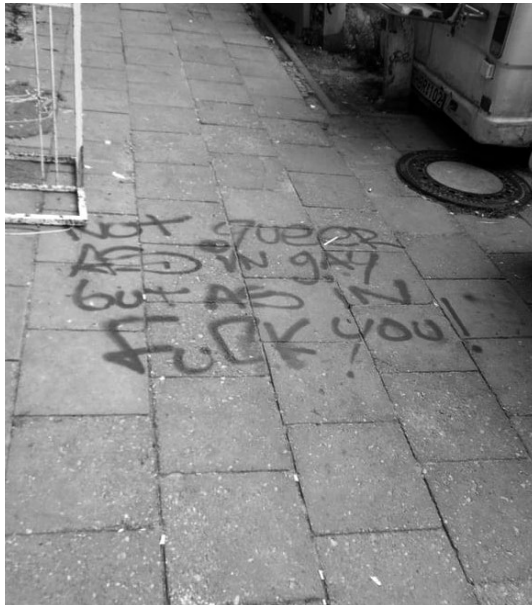 NOT QUEER
AS IN gAY
BUT AS IN
FUCK YOU!